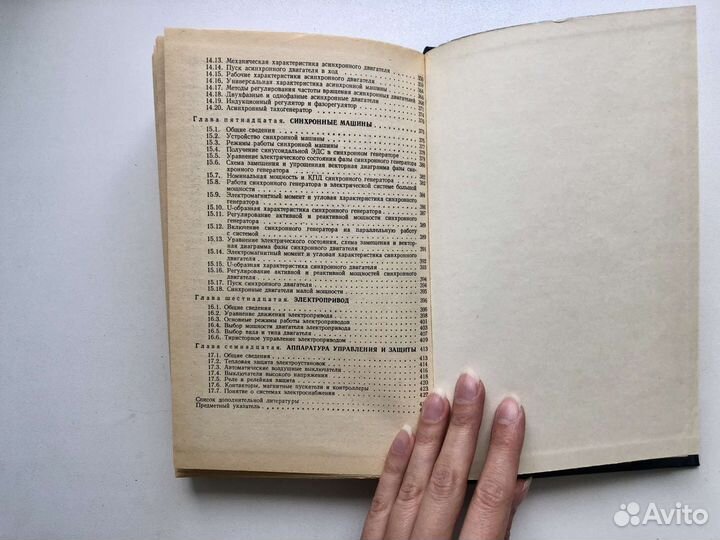 14.13. Механическая характеристика асинхронного двигателя
14.14. Пуск асинхронного двигателя в ход
14.15. Рабочие характеристики асинхронного двигателя
14.16. Универсальная характеристика асинхронной машины
14.17. Методы регулирования частоты вращения асинхронных двигателей
14.18. Двухфазные и однофазные асинхронные двигатели
14.19. Индукционный регулятор и фазорегулятор
14.20. Асинхронный тахогенератор
Глава пятнадцатая. СИНХРОННЫЕ МАШИНЫ
15.1. Общие сведения
15.2. Устройство синхронной машины
15.3. Режимы работы синхронной машины
15.4. Получение синусоидальной ЭДС в синхронном генераторе
15.5. Уравнение электрического состояния фазы синхронного генератора
15.6. Схема замещения и упрощенная векторная диаграмма фазы син-
хронного генератора
15.7. Номинальная мощность и КПД синхронного генератора 382
15.8. Работа синхронного генератора в электрической системе большой
мощности
15.9. Электромагнитный момент и угловая характеристика синхронного
генератора
15.10. U-образная характеристика синхронного генератора 387
15.11. Регулирование активной и реактивной мощности синхронного
генератора
15.12. Включение синхронного генератора на параллельную работу
с системой 389
15.13. Уравнение электрического состояния, схема замещения и вектор-
ная диаграмма фазы синхронного двигателя 391
15.14. Электромагнитный момент и угловая характеристика синхронного
двигателя
15.15. U-образная характеристика синхронного двигателя
15.16. Регулирование активной и реактивной мощностей синхронного
двигателя 394
15.17. Пуск синхронного двигателя 394
15.18. Синхронные двигатели малой мощности 395
Глава шестнадцатая. ЭЛЕКТРОПРИВОД 396
16.1. Общие сведения 396
16.2. Уравнение движения электропривода 398
16.3. Основные режимы работы электроприводов
16.4. Выбор мощности двигателя электропривода 403
16.5. Выбор вида и типа двигателя 407
16.6. Тиристорное управление электроприводом 409
Глава семнадцатая. АППАРАТУРА УПРАВЛЕНИЯ И ЗАЩИТЫ 413
17.1. Общие сведения 413
17.2. Тепловая защита электроустановок 414
17.3. Автоматические воздушные выключатели 416
17.4. Выключатели высокого напряжения 417
17.5. Реле и релейная защита 420
17.6. Контакторы, магнитные пускатели и контроллеры 423
17.7. Понятие о системах электроснабжения 427
Список дополнительной литературы
Предметный указатель
Avito